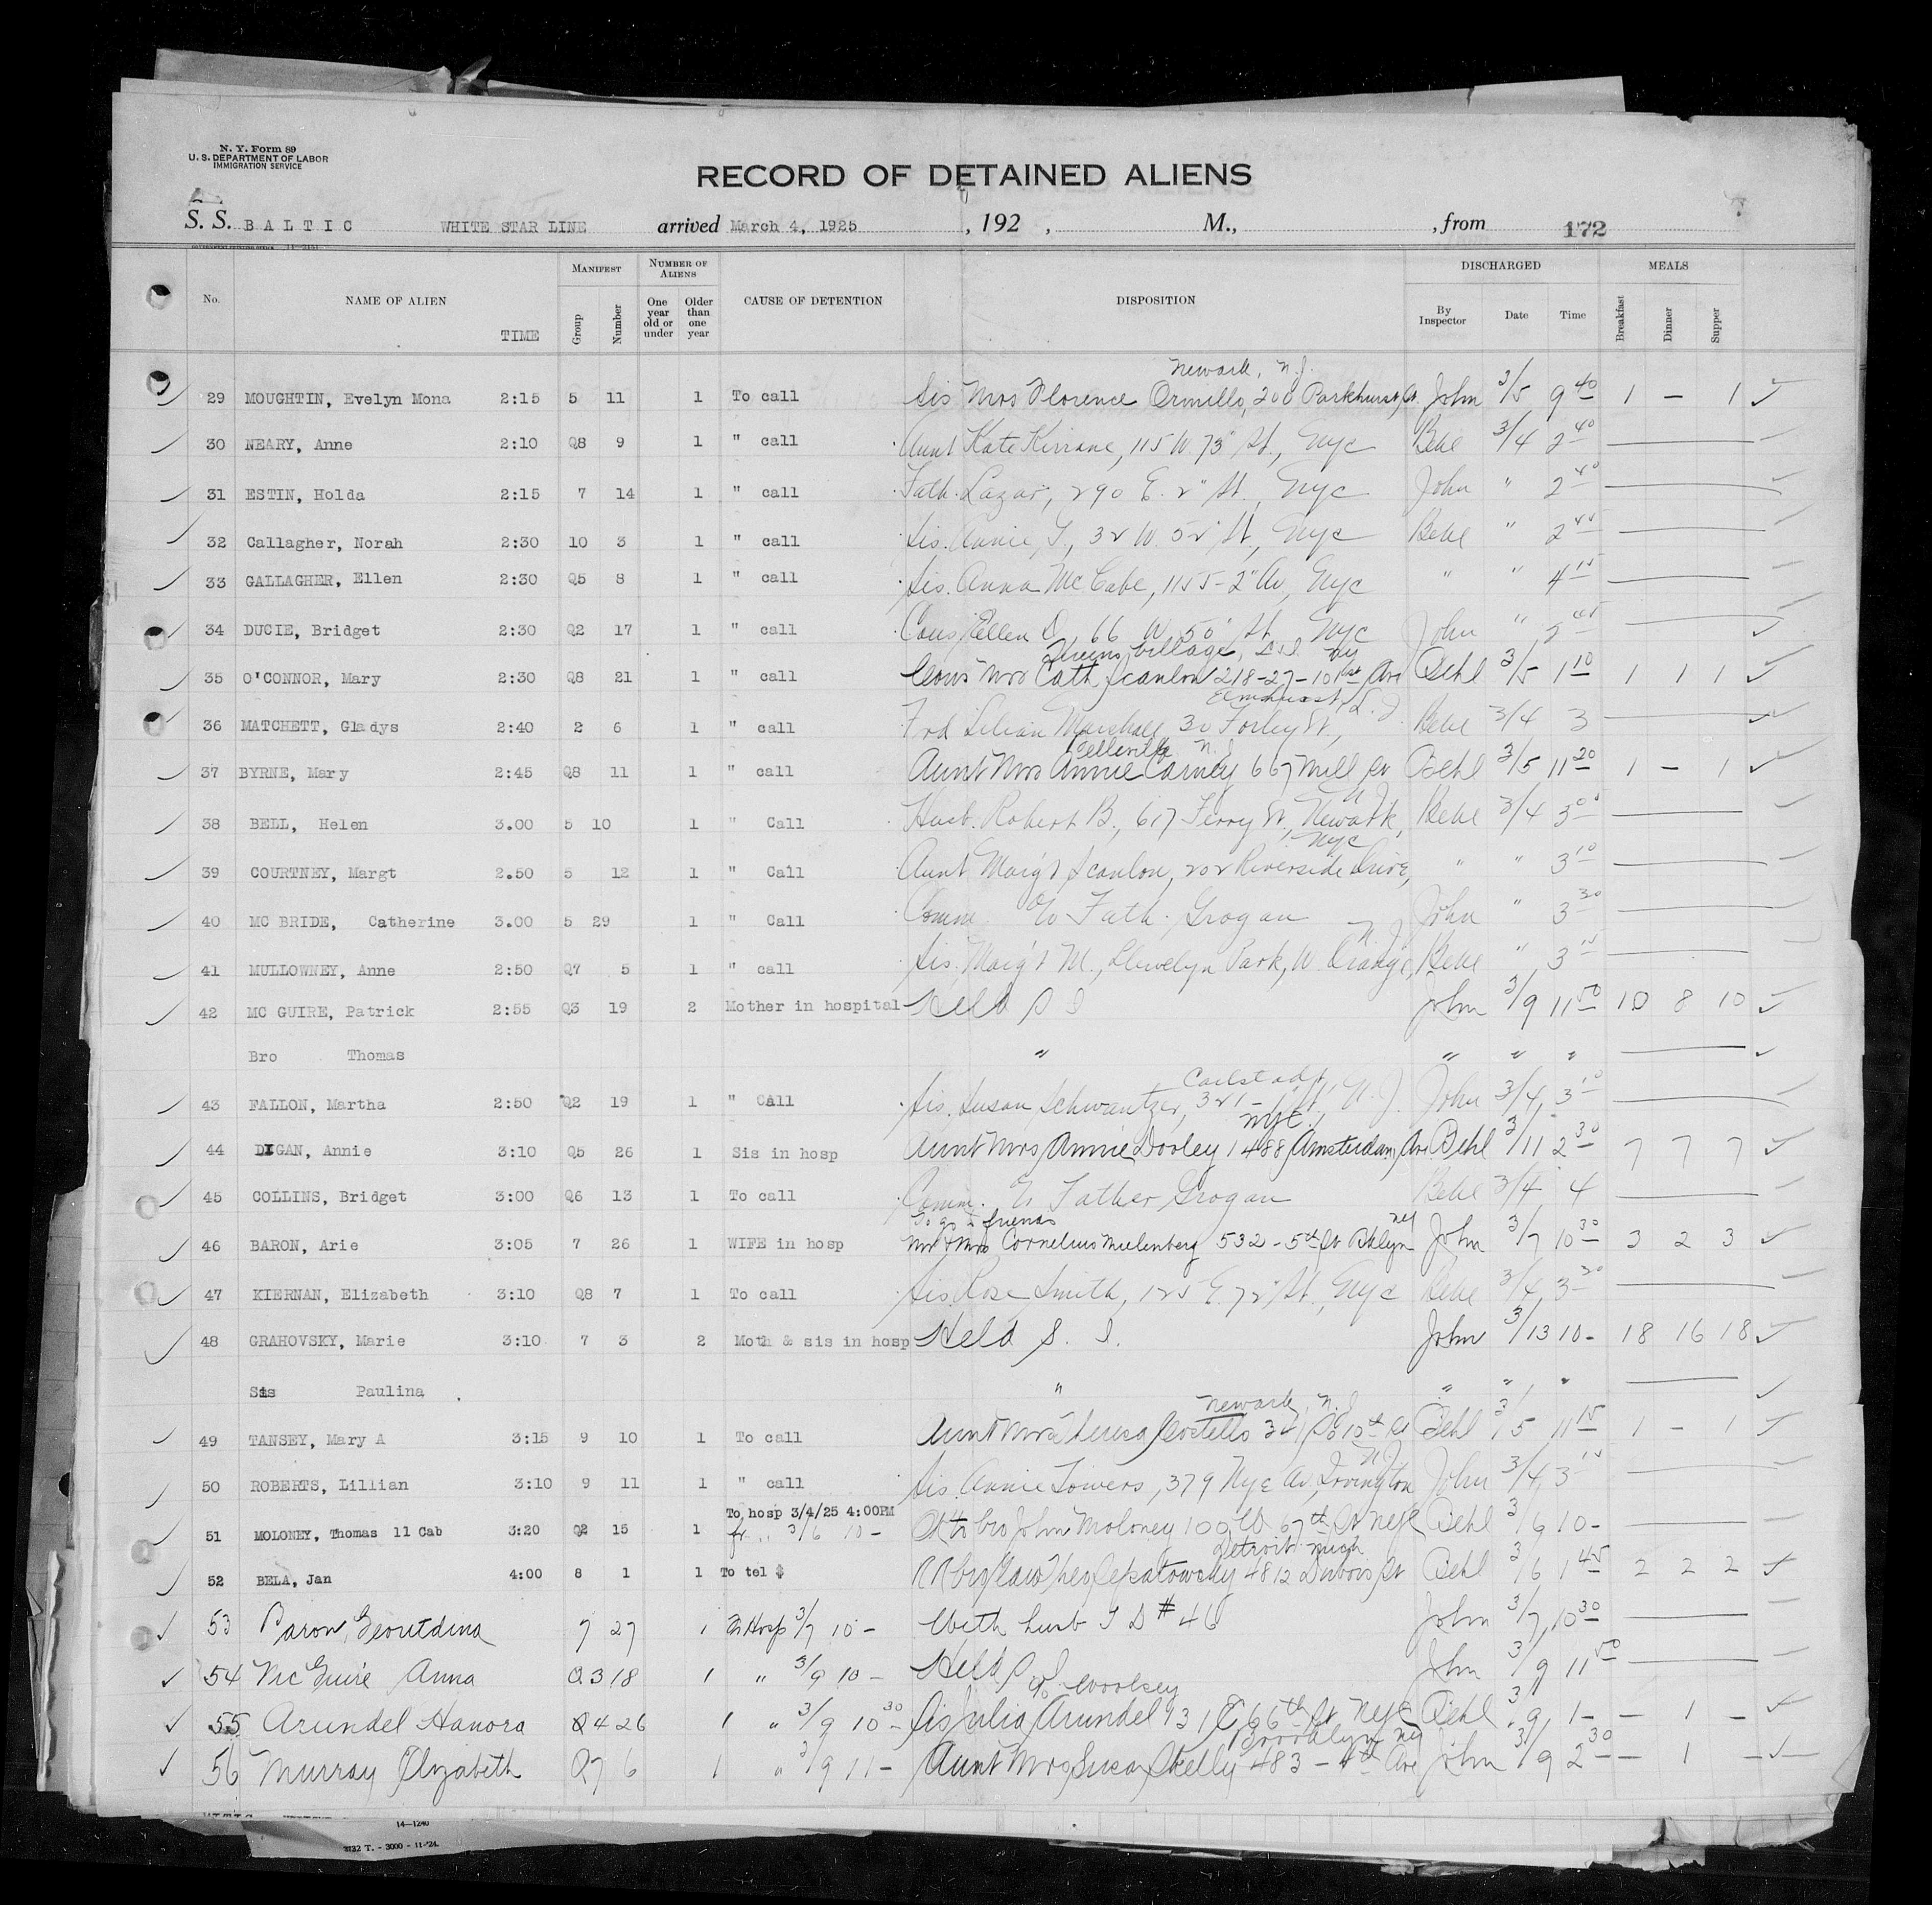 N. Y. Form 89
U. S. DEPARTMENT OF LABOR
IMMIGRATION SERVICE
RECORD OF DETAINED ALIENS
S. S. BALTIC WHITE STAR LINE arrived March 4, 1925, 192 , M., , from 172
No. NAME OF ALIEN TIME MANIFEST Group Number NUMBER OF ALIENS One year old or under Older than one year CAUSE OF DETENTION DISPOSITION DISCHARGED By Inspector Date Time MEALS Breakfast Dinner Supper
Newark, N.J.
29 MOUGHTIN, Evelyn Mona 2:15 5 11 1 To call Sis Mrs Florence 200 Parkhurst St John 3/5 9 40 1 — 1
30 NEARY, Anne 2:10 Q8 9 1 " call Aunt Kate Kirrane, 115 W. 73" St., NYC Behl 3/4 2 40
31 ESTIN, Holda 2:15 7 14 1 " call Fath. Lazar, 290 E. 2" St., NYC John " 2 40
32 Callagher, Norah 2:30 10 3 1 " call Sis. Annie G., 32 W. 52" St., NYC Behl " 2 45
33 GALLAGHER, Ellen 2:30 Q5 8 1 " call Sis. Anna McCabe, 1155-2" Av, NYC " " 4 15
34 DUCIE, Bridget 2:30 Q2 17 1 " call Cous Ellen D. 66 W. 50" St. NYC John " 2 45
Queens Village, L.I. NY
35 O'CONNOR, Mary 2:30 Q8 21 1 " call Cous Mrs Cath Scanlon 218-27-101st Ave Behl 3/5 1 10 1 1 1
Elmhurst, L.I.
36 MATCHETT, Gladys 2:40 2 6 1 " call Frd Lilian Marshall 30 Forley St., Behl 3/4 3
Belleville N.J.
37 BYRNE, Mary 2:45 Q8 11 1 " call Aunt Mrs Annie Carney 667 Mill St Behl 3/5 11 20 1 — 1
N.J.
38 BELL, Helen 3.00 5 10 1 " Call Husb. Robert B., 617 Ferry St., Newark, Behl 3/4 3 00
NYC
39 COURTNEY, Margt 2.50 5 12 1 " Call Aunt Marg't Scanlon, 202 Riverside Drive, " " 3 10
40 MC BRIDE, Catherine 3.00 5 29 1 " Call Comm. to Fath. Grogan John " 3 30
N.J.
41 MULLOWNEY, Anne 2:50 Q7 5 1 " call Sis. Marg't M., Llewelyn Park, W. Orange, Behl " 3 15
42 MC GUIRE, Patrick 2:55 Q3 19 2 Mother in hospital Held S I John 3/9 11 50 10 8 10
Bro Thomas " " " "
Carlstadt,
43 FALLON, Martha 2:50 Q2 19 1 " CAll Sis. Susan Schwantzer, 321- St., N.J. John 3/4 3 10
NYC.
44 DIGAN, Annie 3:10 Q5 26 1 Sis in hosp Aunt Mrs Annie Dooley 1488 Amsterdam Ave Behl 3/11 2 30 7 7 7
45 COLLINS, Bridget 3:00 Q6 13 1 To call Comm. to Father Grogan Behl 3/4 4
To go to friends NY
46 BARON, Arie 3:05 7 26 1 WIFE in hosp Mr & Mrs Cornelius Mulenberg 532-5th St Bklyn John 3/7 10 30 3 2 3
47 KIERNAN, Elizabeth 3:10 Q8 7 1 To call Sis Rose Smith, 125 E. 72" St., NYC Behl 3/4 3 20
48 GRAHOVSKY, Marie 3:10 7 3 2 Moth & sis in hosp Held S. I. John 3/13 10 - 18 16 18
Sis Paulina " " " "
Newark, N.J.
49 TANSEY, Mary A 3:15 9 10 1 To call Aunt Mrs Theresa Costello 341 So 10th St Behl 3/5 11 15 1 — 1
N.J.
50 ROBERTS, Lillian 3:10 9 11 1 " call Sis. Annie Towers, 379 Nye Av, Irvington John 3/4 3 15
To hosp 3/4/25 4:00PM
51 MOLONEY, Thomas 11 Cab 3:20 Q2 15 1 fr " 3/6 10 - to bro John Moloney 100 W 67th St NYC Behl 3/6 10 -
Detroit Mich
52 BELA, Jan 4:00 8 1 1 To tel $ RR bro/law 4812 Dubois St Behl 3/6 1 45 2 2 2
53 Baron, Geoutdina 7 27 1 fr Hosp 3/7 10 - With husb I D #46 John 3/7 10 30
54 McGuire Anna Q3 18 1 " 3/9 10 - Held S I John 3/9 11 50
% Woolsey
55 Arundel Hanora Q4 26 1 " 3/9 10 30 Sis Julia Arundel 131 E 66th St NYC Behl 3/9 1 - — 1 —
Brooklyn NY
56 Murray Elizabeth Q7 6 1 " 3/9 11 - Aunt Mrs Susan Skelly 483-4th Ave John 3/9 2 30 — 1 —
14-1240
2732 T. - 3000 - 11-'24.